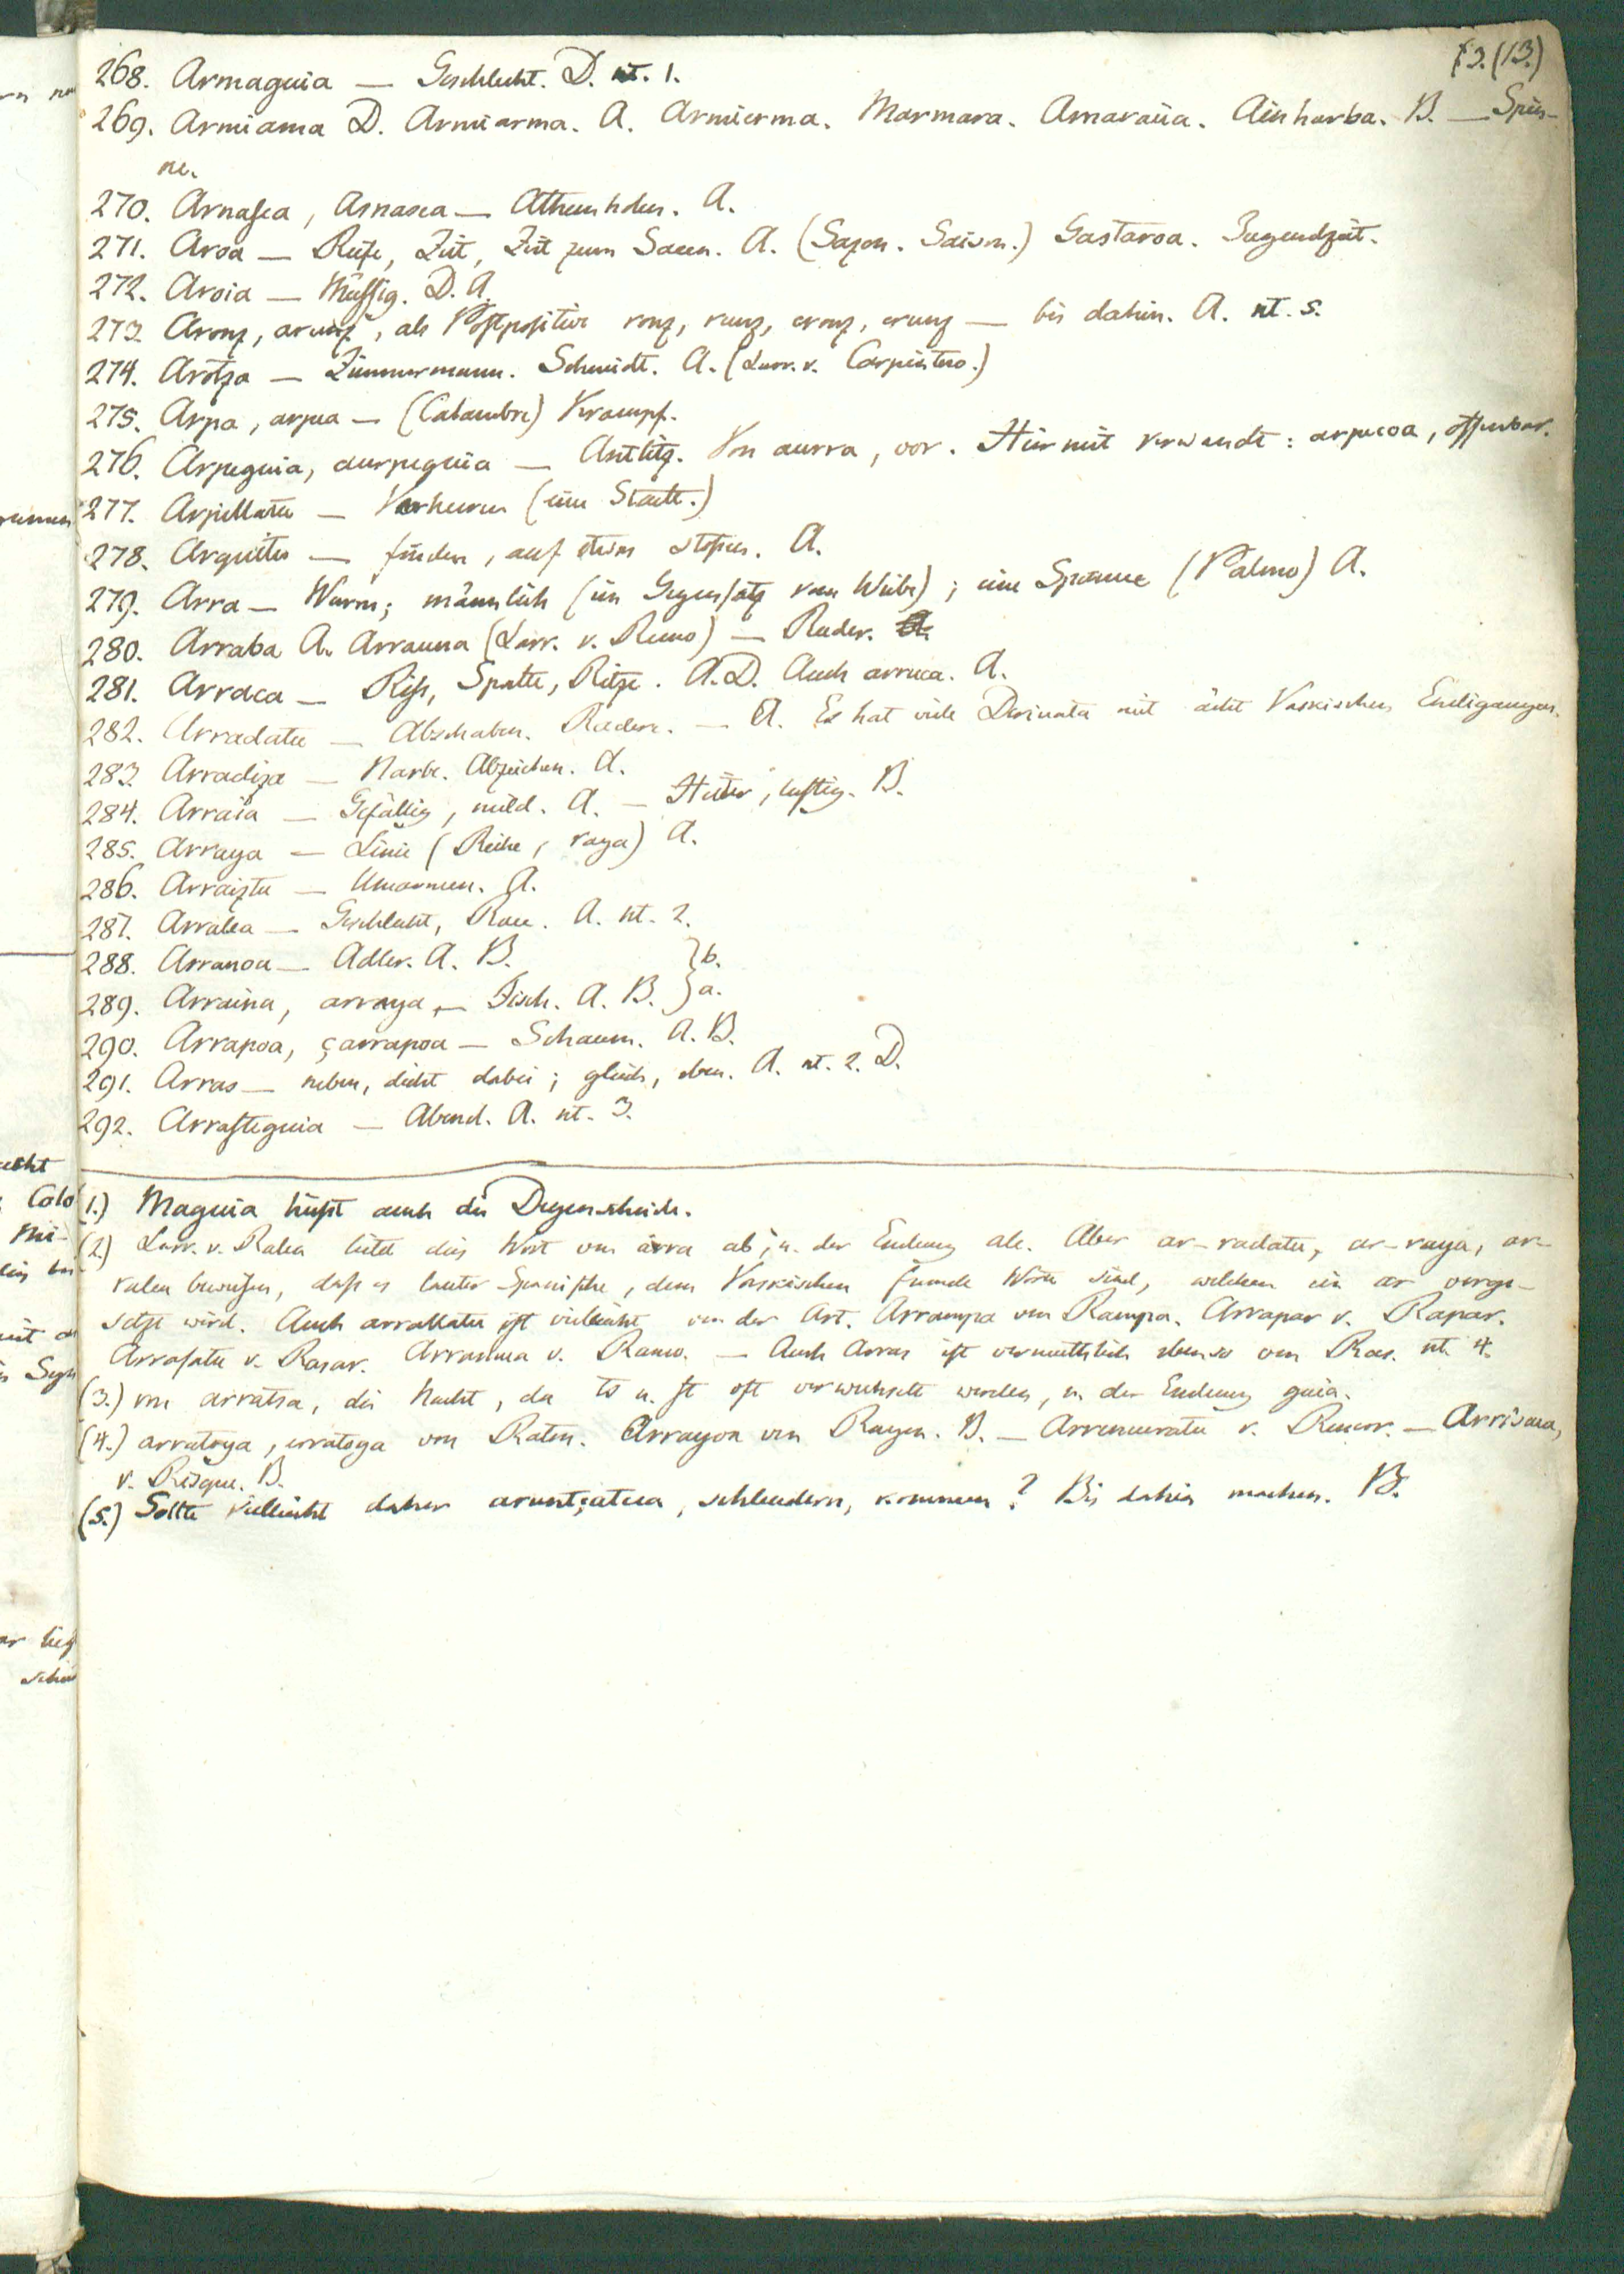 13. (13.)
268. Armaguia — Geschlecht. D. nt. 1.
269. Armiama D. Armiarma. A. Armierma. Marmara. Amaraüa. Ainharba. B. — Spin-
ne.
270. Arnasca, Asnasea — Athemholen. A.
271. Aroa — Reife, Zeit, Zeit zum Saeen. A. (Sazon. Saison.) Gastaroa. Jugendzeit.
272. Aroia — Müssig. D. A.
273. Aronz, arunz, als Postpositiv ronz, runz, eronz, erunz — bis dahin. A. nt. 5.
274. Arotza — Zimmermann. Schmidt. A. (Larr. v. Carpintero.)
275. Arpa, arpea — (Calambre) Krampf.
276. Arpeguia, aurpeguia — Antlitz. Von aurra, vor. Hiermit verwandt: arpecoa, offenbar.
277. Arpillatu — Verheeren (eine Stadt.)
278. Arquitu — finden, auf etwas stossen. A.
279. Arra — Wurm; männlich (im Gegensatz vom Weibe); eine Spanne (Palmo) A.
280. Arraba A. Arrauna (Larr. v. Remo) — Ruder. A.
281. Arraca — Riss, Spalte, Ritze. A. D. Auch arruca. A.
282. Arradatu — Abschaben. Radere. — A. Es hat viele Derivata mit ächt Vaskischen Endigungen.
283. Arradiza — Narbe. Abzeichen. A.
284. Arraia — Gefällig, mild. A. — Heiter, lustig. B.
285. Arraya — Linie (Reihe, raya) A.
286. Arraiztu — Umarmen. A.
287. Arralea — Geschlecht, Race. A. nt. 2.
288. Arranoa — Adler. A. B. } b.
289. Arraina, arraya — Fisch. A. B. } a.
290. Arrapoa, çarrapoa — Schaum. A. B.
291. Arras — neben, dicht dabei; gleich, eben. A. nt. 2. D.
292. Arrasteguia — Abend. A. nt. 3.
(1.) Maguia heisst auch die Degenscheide.
(2.) Larr. v. Ralea leitet dies Wort von arra ab, u. der Endung ale. Aber ar-radatu, ar-raya, ar-
ralea beweisen, dass es lauter Spanische, dem Vaskischen fremde Wörter sind, welchen ein ar vorge-
setzt wird. Auch arrallatu ist vielleicht von der Art. Arrampa von Rampa. Arrapar v. Rapar.
Arrasatu v. Rasar. Arrauna v. Ramo. — Auch Arras ist vermuthlich ebenso von Ras. nt. 4.
(3.) von arratsa, die Nacht, da ts u. st oft verwechselt werden, u. der Endung guia.
(4.) arratoya, erratoya von Raton. Arrayoa von Rayon. B. — Arrencuratu v. Rencor. — Arriscua,
v. Risque. B.
(5.) Sollte vielleicht daher aruntçatcea, schleudern, kommen? Bis dahin machen. B.